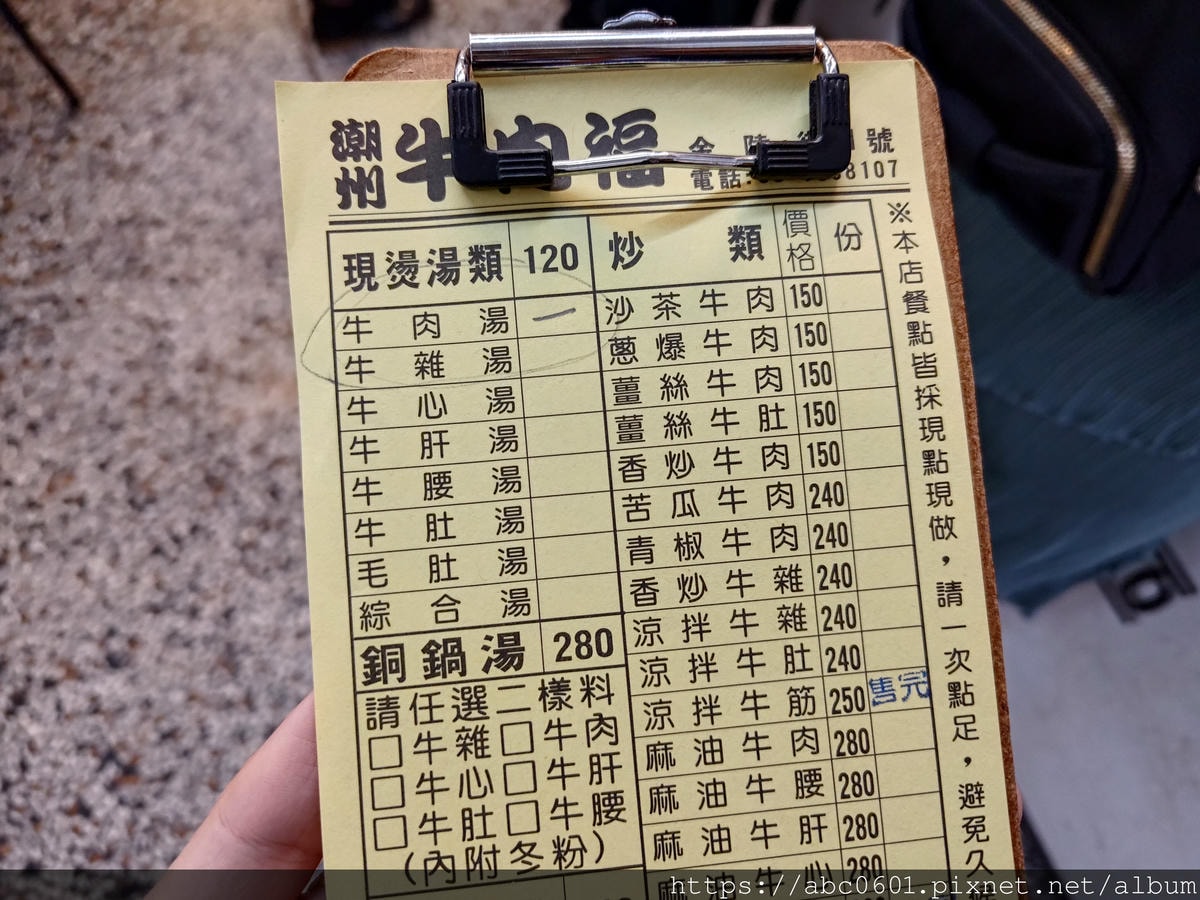 潮州
牛肉福
金陵
號
電話:
8107
現燙湯類 120
牛肉湯 一
牛雜湯
牛心湯
牛肝湯
牛腰湯
牛肚湯
毛肚湯
綜合湯
銅鍋湯 280
請任選二樣料
□牛雜□牛肉
□牛心□牛肝
□牛肚□牛腰
(內附冬粉)
炒類 價格 份
沙茶牛肉 150
蔥爆牛肉 150
薑絲牛肉 150
薑絲牛肚 150
香炒牛肉 150
苦瓜牛肉 240
青椒牛肉 240
香炒牛雜 240
涼拌牛雜 240
涼拌牛肚 240
涼拌牛筋 250 售完
麻油牛肉 280
麻油牛腰 280
麻油牛肝 280
麻油牛心 280
※本店餐點皆採現點現做,請一次點足,避免久
https://abc0601.pixnet.net/album